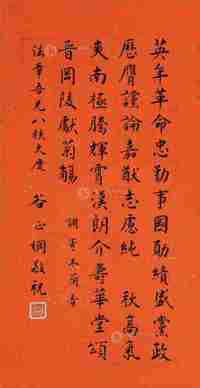 英年革命忠勤事國勛績盛黨政
歷膺讜論嘉猷志慮純　秋高氣
爽南極騰輝霄漢朗介壽華堂頌
晉岡陵獻菊觴　調寄木蘭香
法章吾兄八秩大慶　谷正綱敬祝